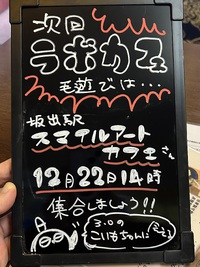 次回
ラボカフェ
毛遊びは…
坂出駅
スマイルアート
カフェさん
12月22日14時
集合しましょう!!
3.0の
こいもちゃんに